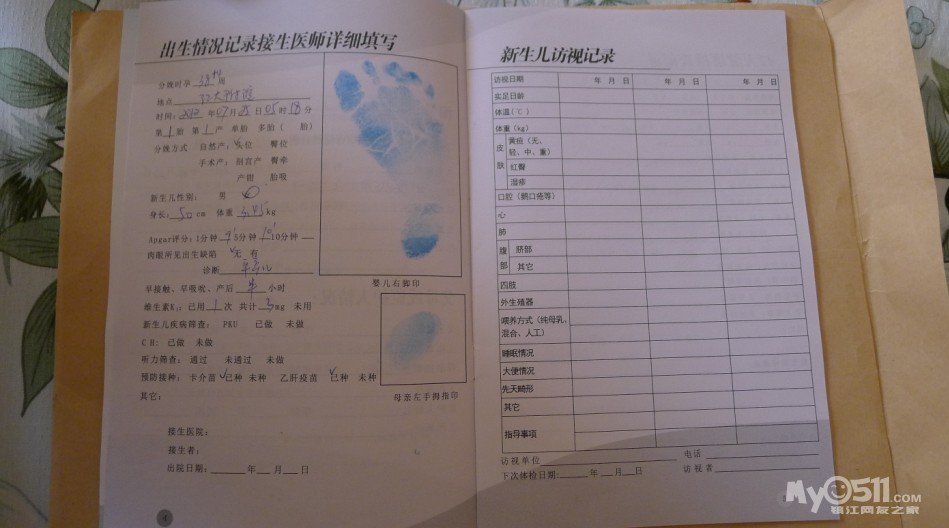 出生情况记录接生医师详细填写
分娩时孕 周
地点
时间: 年07月25日05时18分
第1胎 第1产 单胎 多胎( 胎)
分娩方式 自然产: 头位 臀位
手术产: 剖宫产 臀牵
产钳 胎吸
新生儿性别: 男
身长: 50 cm 体重 kg
Apgar评分: 1分钟 9' 5分钟 10' 10分钟
肉眼所见出生缺陷 无 有
诊断
早接触、早吸吮、产后 小时
维生素K₁: 已用 1 次 共计 mg 未用
新生儿疾病筛查: PKU 已做 未做
CH: 已做 未做
听力筛查: 通过 未通过 未做
预防接种: 卡介苗 已种 未种 乙肝疫苗 已种 未种
其它:
接生医院:
接生者:
出院日期: 年 月 日
婴儿右脚印
母亲左手拇指印
4
新生儿访视记录
访视日期 年 月 日 年 月 日 年 月 日
实足日龄
体温(℃)
体重(kg)
皮肤
黄疸(无、轻、中、重)
红臀
湿疹
口腔(鹅口疮等)
心
肺
腹部
脐部
其它
四肢
外生殖器
喂养方式(纯母乳、混合、人工)
睡眠情况
大便情况
先天畸形
其它
指导事项
访视单位 电话
下次体检日期: 年 月 日 访视者
My0511.COM
镇江网友之家